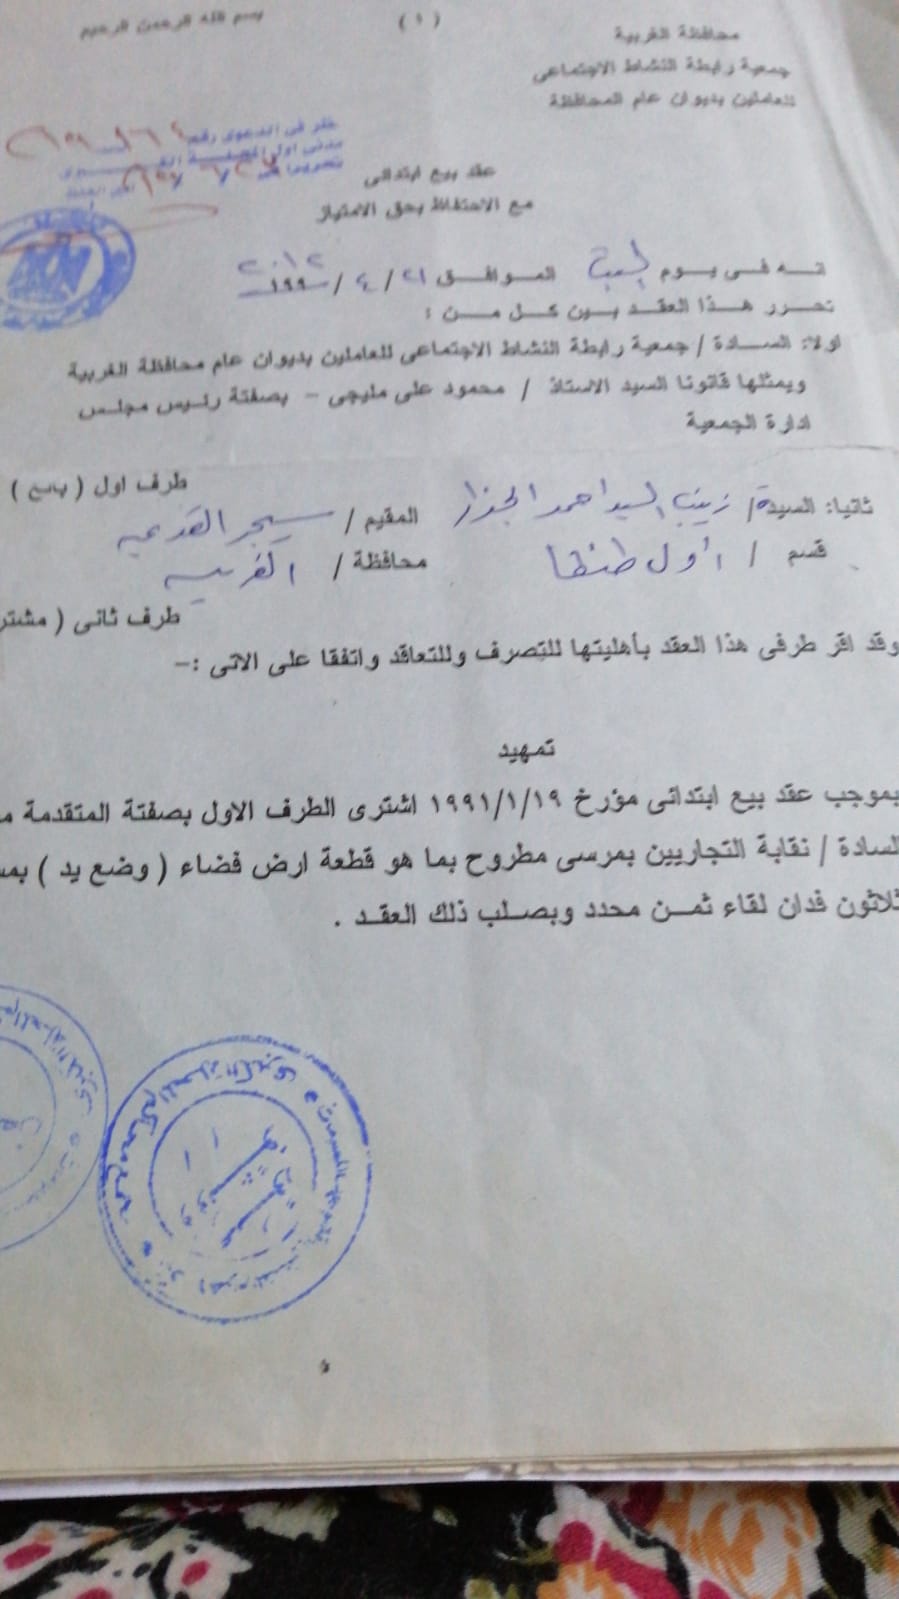 بسم الله الرحمن الرحيم
( ١ )
محافظة الغربية
جمعية رابطة النشاط الاجتماعى
للعاملين بديوان عام المحافظة
نظر فى الدعوى رقم
عقد بيع ابتدائى
مع الاحتفاظ بحق الامتياز
انه فى يوم السبت الموافق ٢١ / ٤ / ٢٠١٢
تحرر هذا العقد بين كل من :
اولا: السادة / جمعية رابطة النشاط الاجتماعى للعاملين بديوان عام محافظة الغربية
ويمثلها قانونا السيد الاستاذ / محمود على مليجى - بصفتة رئيس مجلس
ادارة الجمعية
طرف اول ( بائع )
ثانيا: السيدة/ زينب السيد احمد الجزار المقيم / سيجر القديمه
قسم / أول طنطا محافظة / الغربيه
طرف ثانى ( مشتر
وقد اقر طرفى هذا العقد بأهليتها للتصرف وللتعاقد واتفقا على الاتى :-
تمهيد
بموجب عقد بيع ابتدائى مؤرخ ١٩٩١/١/١٩ اشترى الطرف الاول بصفتة المتقدمة
السادة / نقابة التجاريين بمرسى مطروح بما هو قطعة ارض فضاء ( وضع يد )
ثلاثون فدان لقاء ثمن محدد وبصلب ذلك العقد .